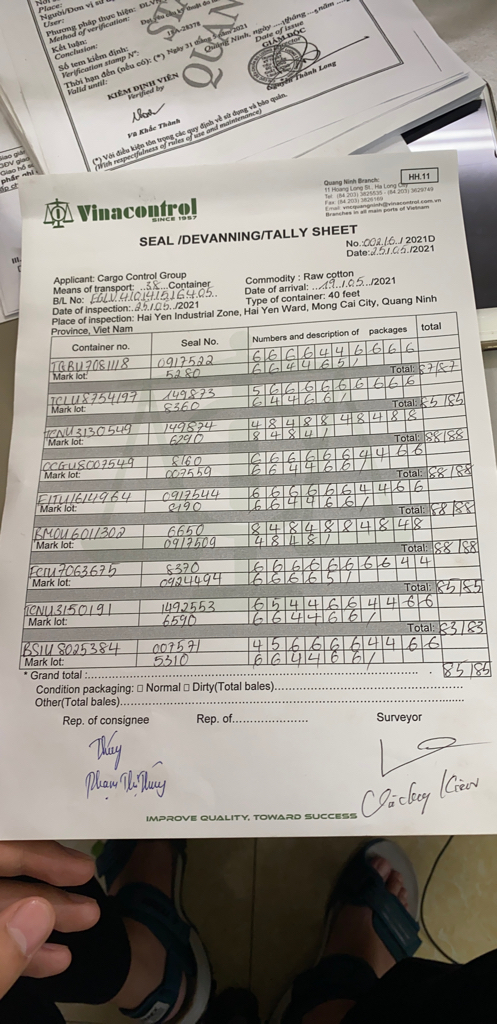 Method of verification:
Kết luận:
Conclusion:
Số tem kiểm định:
Verification stamp N°:
Thời hạn đến (nếu có): (*) Ngày 31 tháng
Valid until:
KIỂM ĐỊNH VIÊN
Verified by
Vũ Khắc Thành
Quảng Ninh, ngày
Date of issue
GIÁM ĐỐC
Nguyễn Thành Long
(*) Với điều kiện tôn trọng các quy định về sử dụng và bảo quản.
(With respectfulness of rules of use and maintenance)
Vinacontrol
SINCE 1957
Quang Ninh Branch:
HH.11
11 Hoang Long St., Ha Long City
Tel: (84 203) 3825535 - (84 203) 3829749
Fax: (84 203) 3826169
Email: vncquangninh@vinacontrol.com.vn
Branches in all main ports of Vietnam
SEAL /DEVANNING/TALLY SHEET
No.: 002/6./2021D
Date: 25/05/2021
Applicant: Cargo Control Group
Commodity : Raw cotton
Means of transport: 38 Container
Date of arrival: 19/05/2021
B/L No: EGLV410141516405
Type of container: 40 feet
Date of inspection: 25/05/2021
Place of inspection: Hai Yen Industrial Zone, Hai Yen Ward, Mong Cai City, Quang Ninh
Province, Viet Nam
Container no. Seal No. Numbers and description of packages total
TGBU7081118 0917522 6 6 6 6 4 4 6 6 6 6
Mark lot: 5280 6 6 4 4 6 5 /
Total: 87/87
TCLU8754197 149873 5 6 6 6 6 6 6 6 6 6
Mark lot: 8360 6 4 4 6 6 /
Total: 85/85
TCNU3130549 149874 4 8 4 8 8 4 8 4 8 8
Mark lot: 6290 8 4 8 4 /
Total: 88/88
OCGU8007549 8160 6 6 6 6 6 6 4 4 6 6
Mark lot: 007559 6 6 4 4 6 6 /
Total: 88/88
EITU1614964 0917544 6 6 6 6 6 6 4 4 6 6
Mark lot: 8190 6 6 4 4 6 6 /
Total: 88/88
BMOU6011302 6650 8 4 8 4 8 8 4 8 4 8
Mark lot: 0917509 4 8 4 8 /
Total: 88/88
FCIU7063675 8370 6 6 6 6 6 6 6 6 4 4
Mark lot: 0924494 6 6 6 6 5 /
Total: 85/85
TCNU3150191 1492553 6 5 4 4 6 6 4 4 6 6
Mark lot: 6590 6 6 4 4 6 6 /
Total: 83/83
BSIU8025384 007571 4 5 6 6 6 6 4 4 6 6
Mark lot: 5310 6 6 4 4 6 6 /
* Grand total : 85/85
Condition packaging: □ Normal □ Dirty(Total bales)
Other(Total bales)
Rep. of consignee Rep. of Surveyor
Thúy
Phạm Thị Thúy
IMPROVE QUALITY, TOWARD SUCCESS